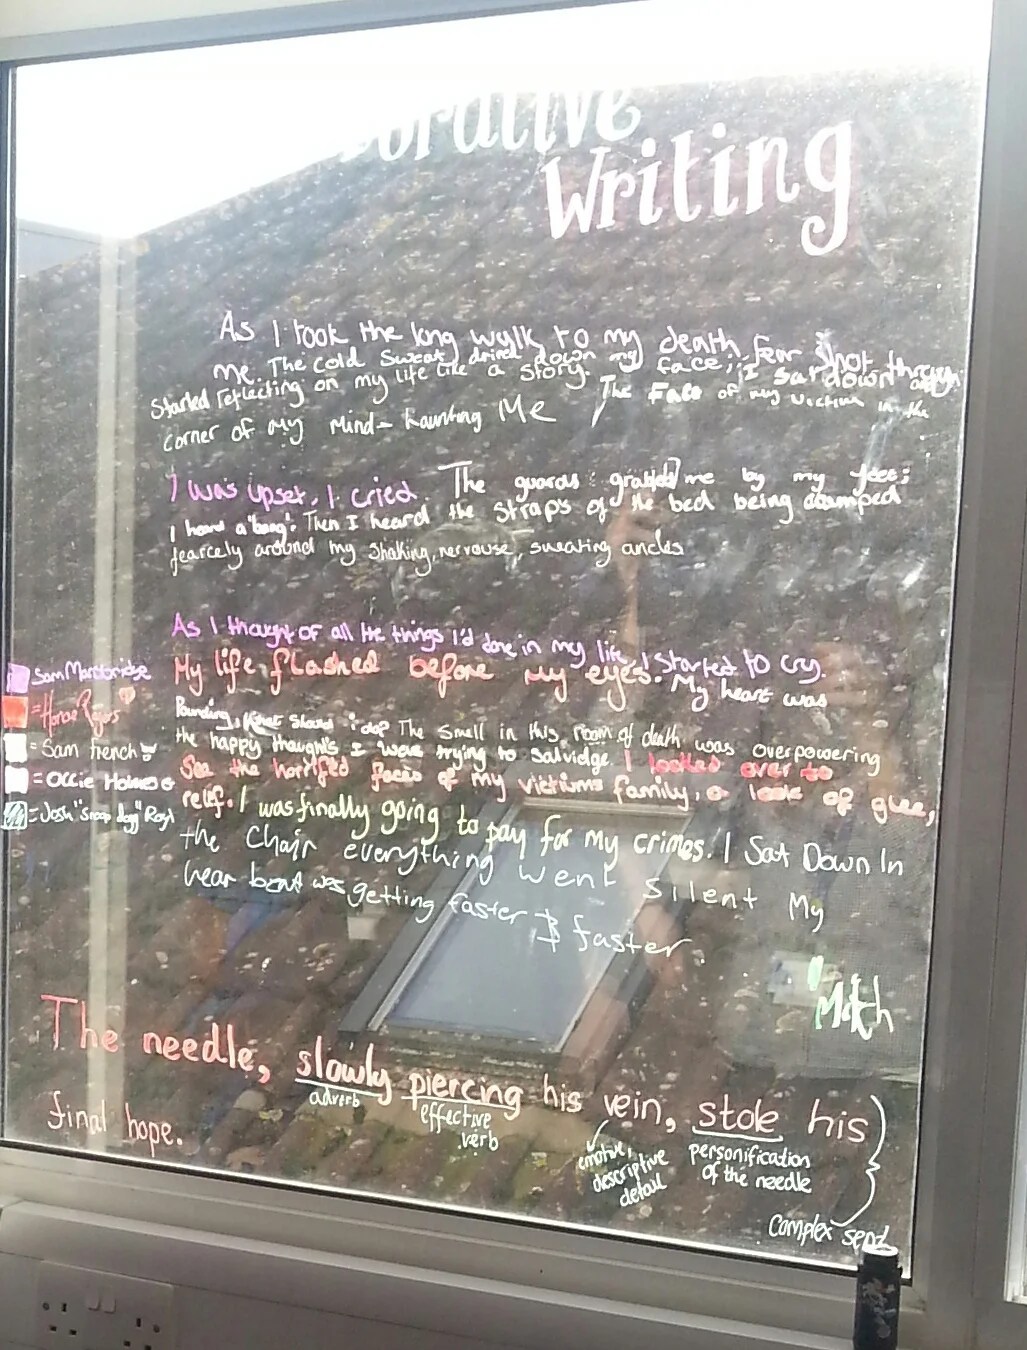 orative
Writing
As I took the long walk to my death, fear shot through
me. The cold sweat dried down my face; I sat down and
started reflecting on my life like a story. The Face of my victim in the
corner of my mind - haunting Me
I was upset, I cried. The guards grabbed me by my feet;
I heard a "bang". Then I heard the straps of the bed being clamped
fearcely around my shaking, nervouse, sweating ancles
As I thought of all the things I'd done in my life, I started to cry.
My life flashed before my eyes. My heart was
Pounding, what should I do? The smell in this room of death was overpowering
the happy thoughts I were trying to salvidge. I looked over to
See the horrified faces of my victiums family, a look of glee,
relif. I was finally going to pay for my crimes. I Sat Down In
the Chair everything went silent My
hear beat was getting faster & faster.
Sam
= Sam french
= Ollie Holmes
= Josh "snoop dogg"
The needle, slowly piercing his vein, stole his
adverb
effective
verb
emotive,
descriptive
detail
personification
of the needle
final hope.
Complex sent